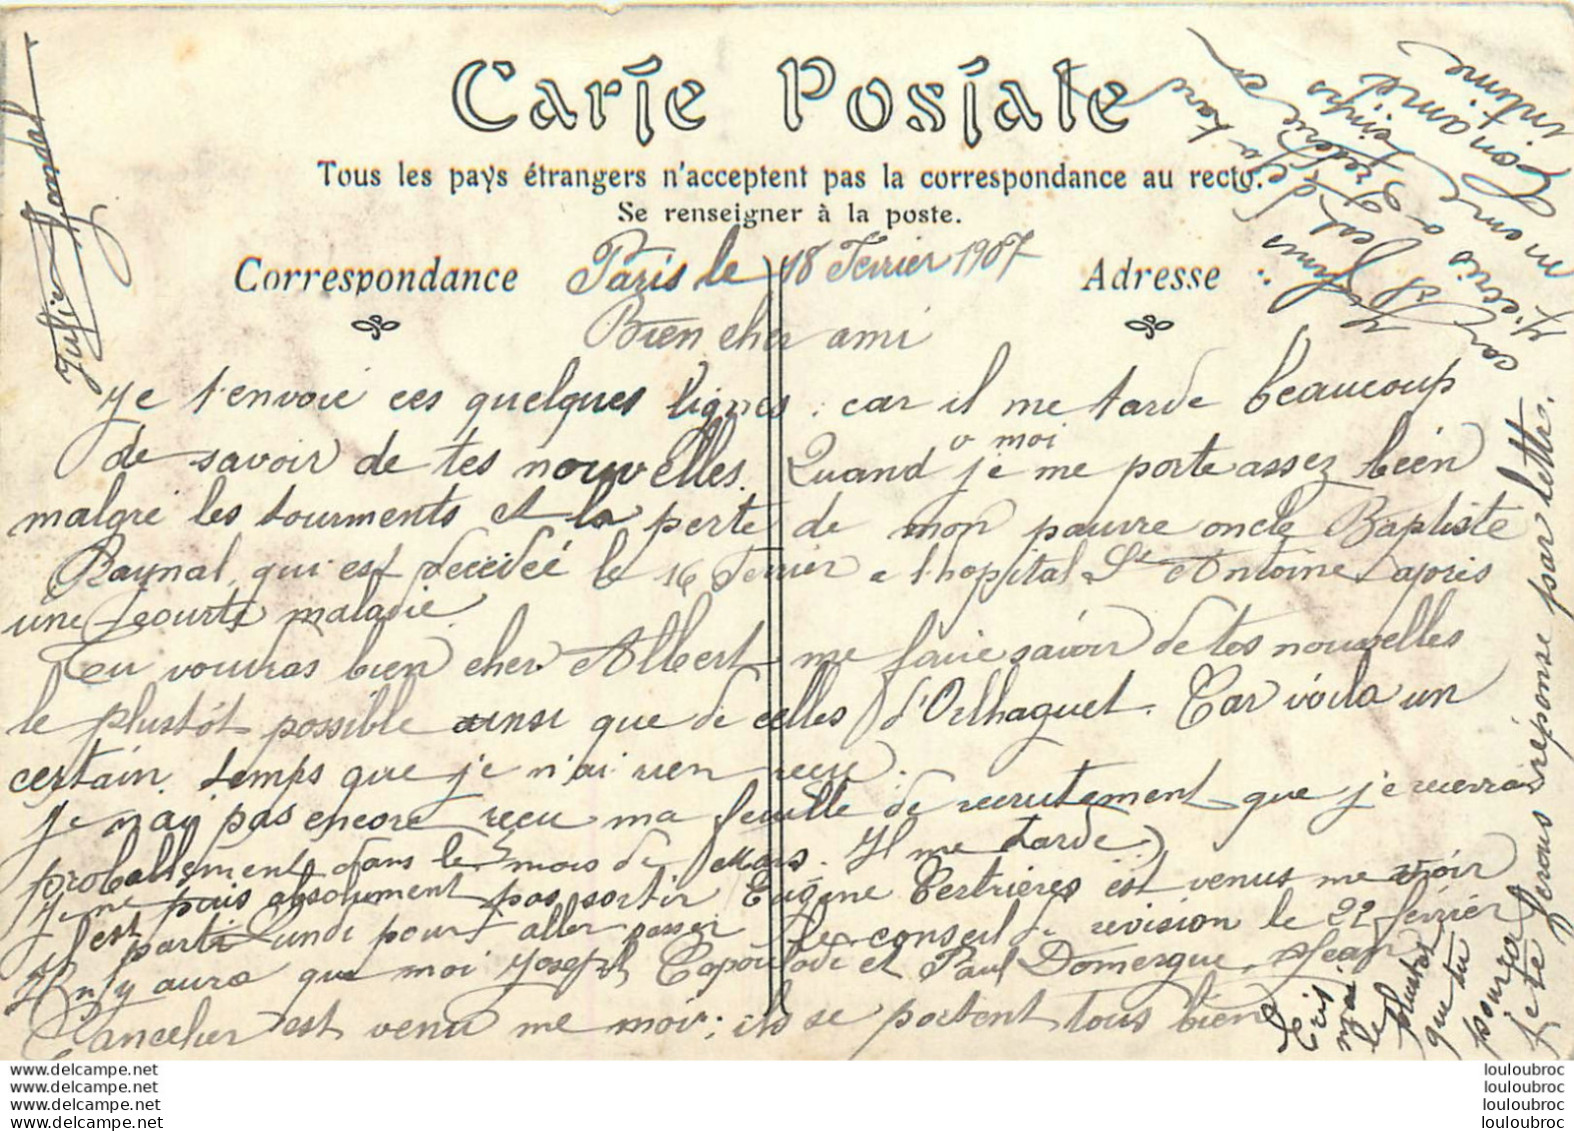 Carte Postale
Tous les pays étrangers n'acceptent pas la correspondance au recto.
Se renseigner à la poste.
Correspondance
Adresse
Paris le 18 Fevrier 1907
Bien cher ami
Je t'envoie ces quelques lignes, car il me tarde beaucoup
de savoir de tes nouvelles. Quand a moi je me porte assez bien
malgré les tourments et la perte de mon pauvre oncle Baptiste
Raynal, qui est decedéé le 16 Fevrier a l'hopital St Antoine apris
une courte maladie.
Tu voudras bien cher Albert me faire savoir de tes nouvelles
le plustôt possible ainsi que de celles d'Orlhaguet. Car voila un
certain temps que je n'ai rien recu.
Je n'ai pas encore recu ma feuille de recrutement que je recevrai
probablement dans le mois de Mars. Il me tarde.
Je ne puis absolument pas sortir Eugène Vertrières est venus me voir
Il est parti Lundi pour aller passer le conseil de revision le 22 février
Il n'y aura que moi Joseph Capoulade et Paul Domergue. Jean
Cancelier est venu me voir; ils se portent tous bien
Ecris
moi
le
plustot
que tu
pourra
je te ferais reponse par lettre.
car
J'ecris
meme
Ton ami
intime
Julien
louloubroc
www.delcampe.net
www.delcampe.net
www.delcampe.net
www.delcampe.net
louloubroc
louloubroc
louloubroc